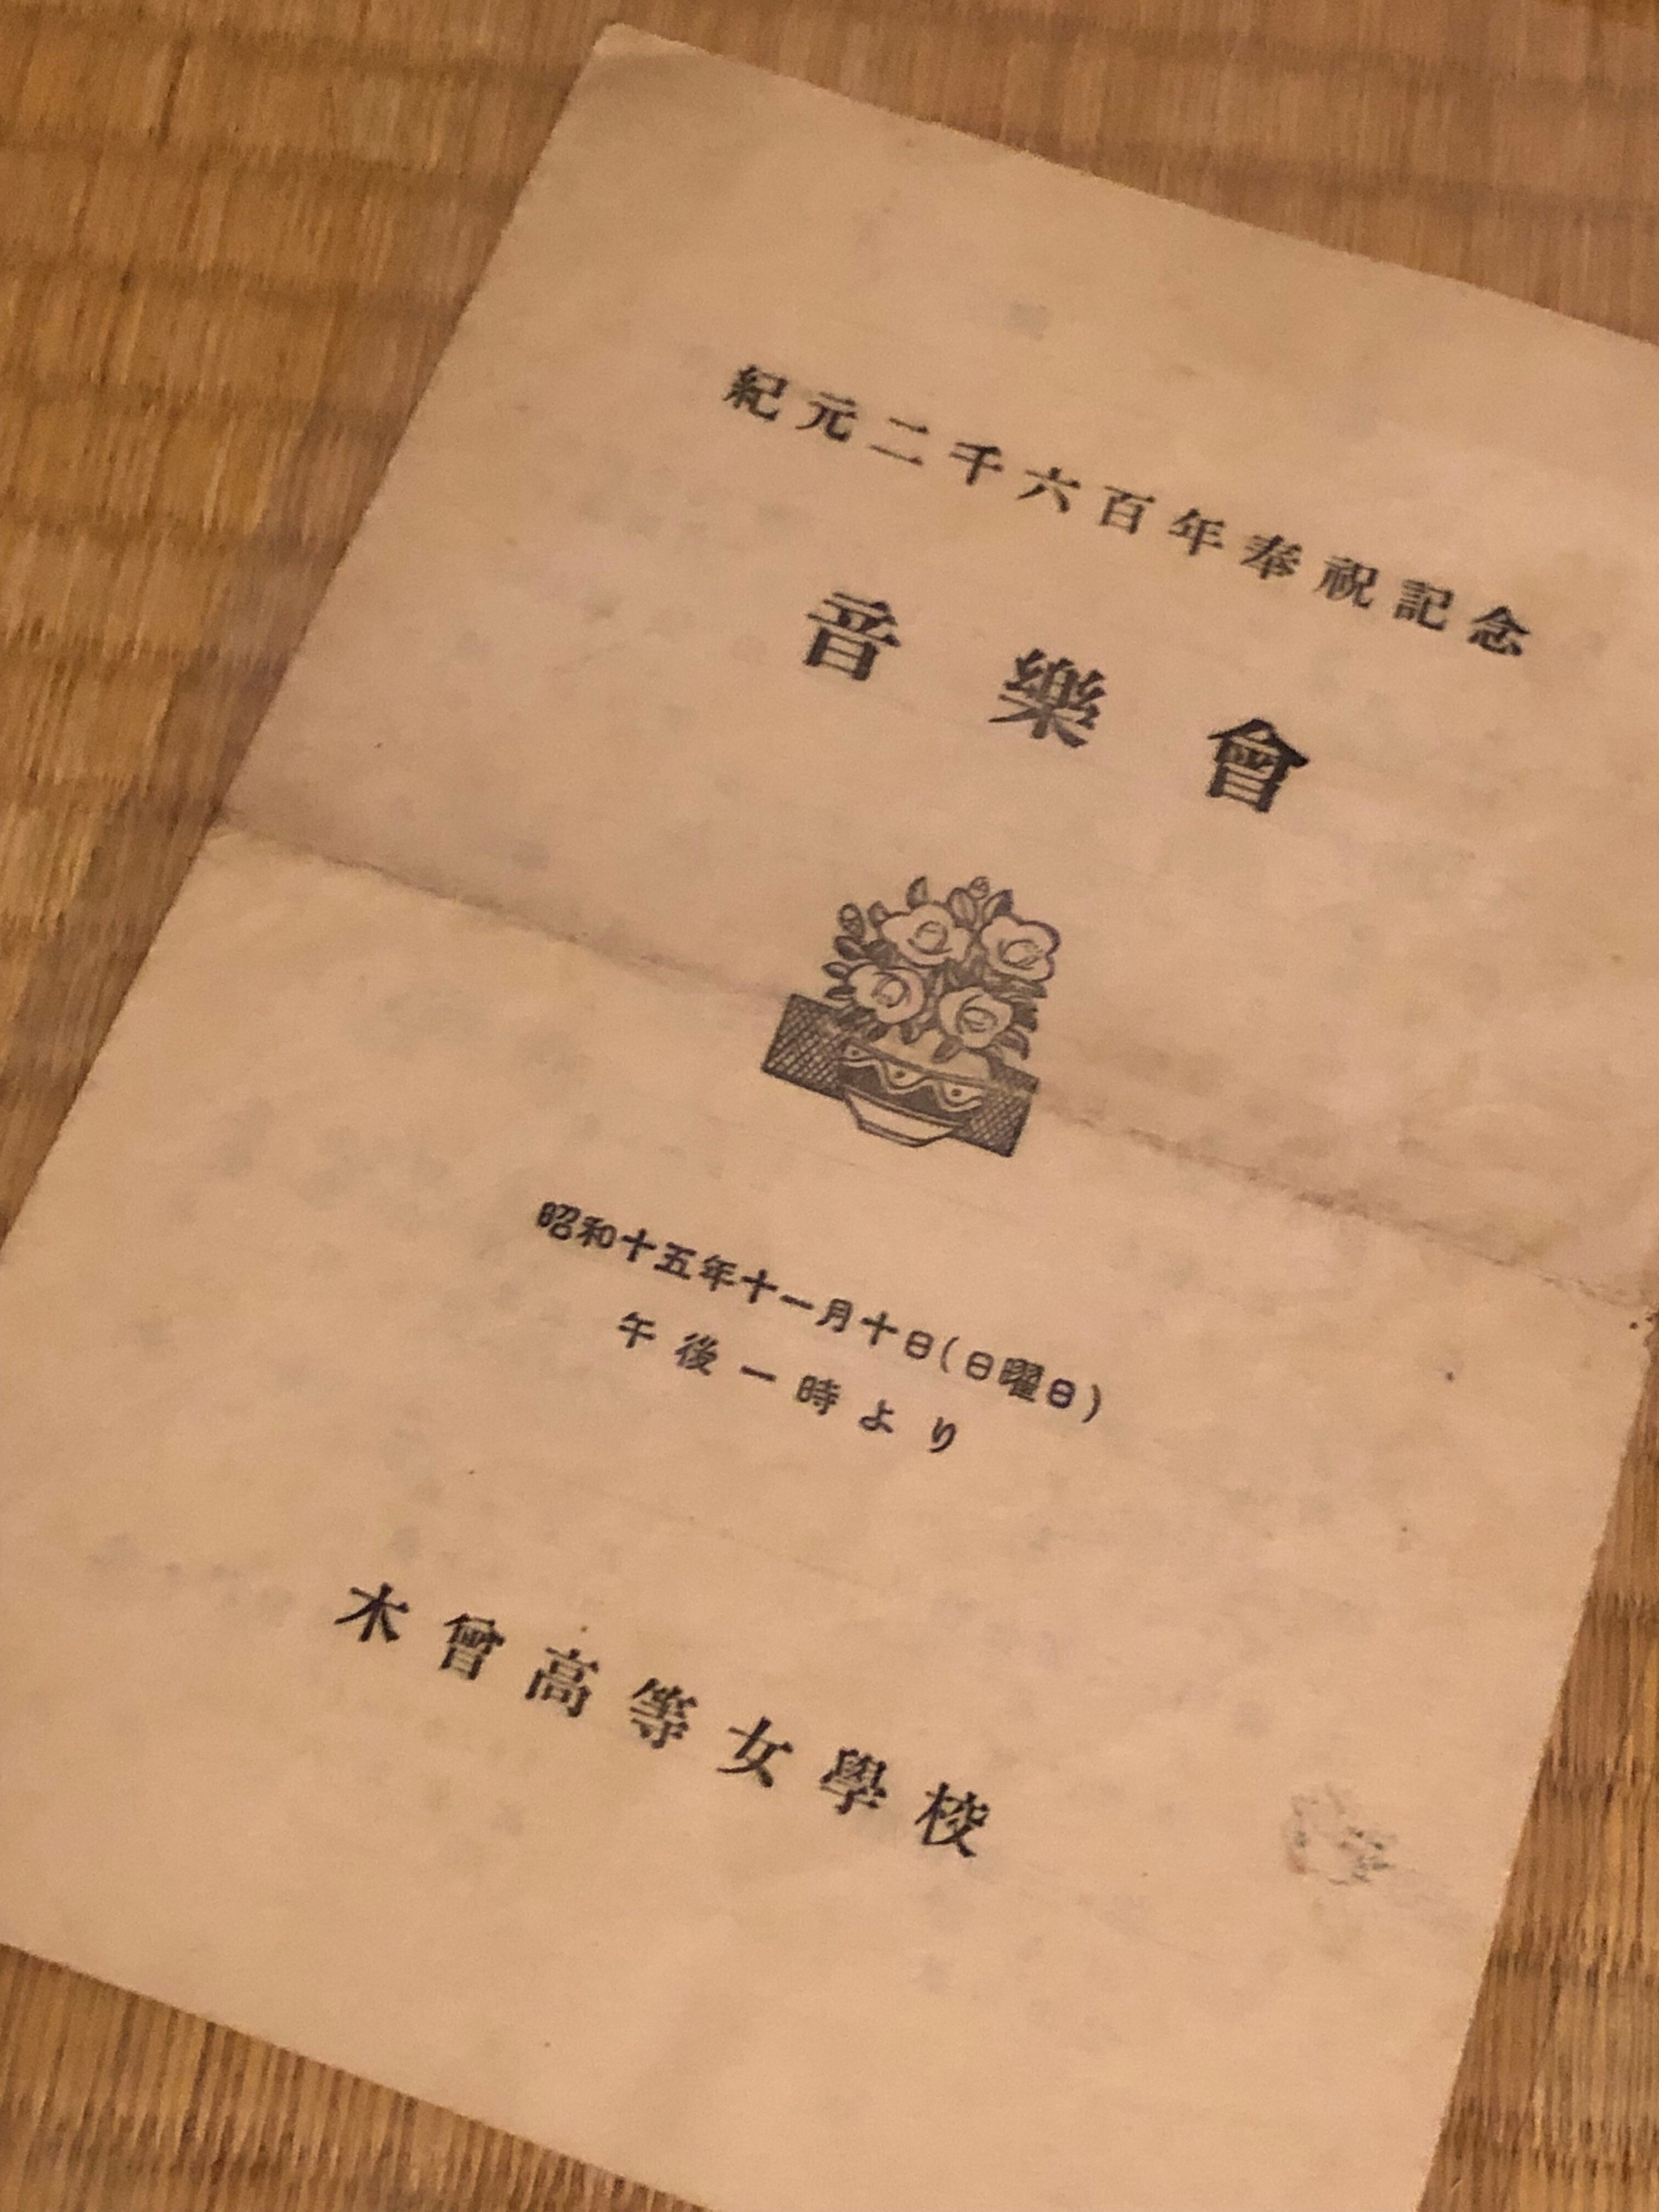 紀元二千六百年奉祝記念
音樂會
昭和十五年十一月十日(日曜日)
午後一時より
木曾高等女學校